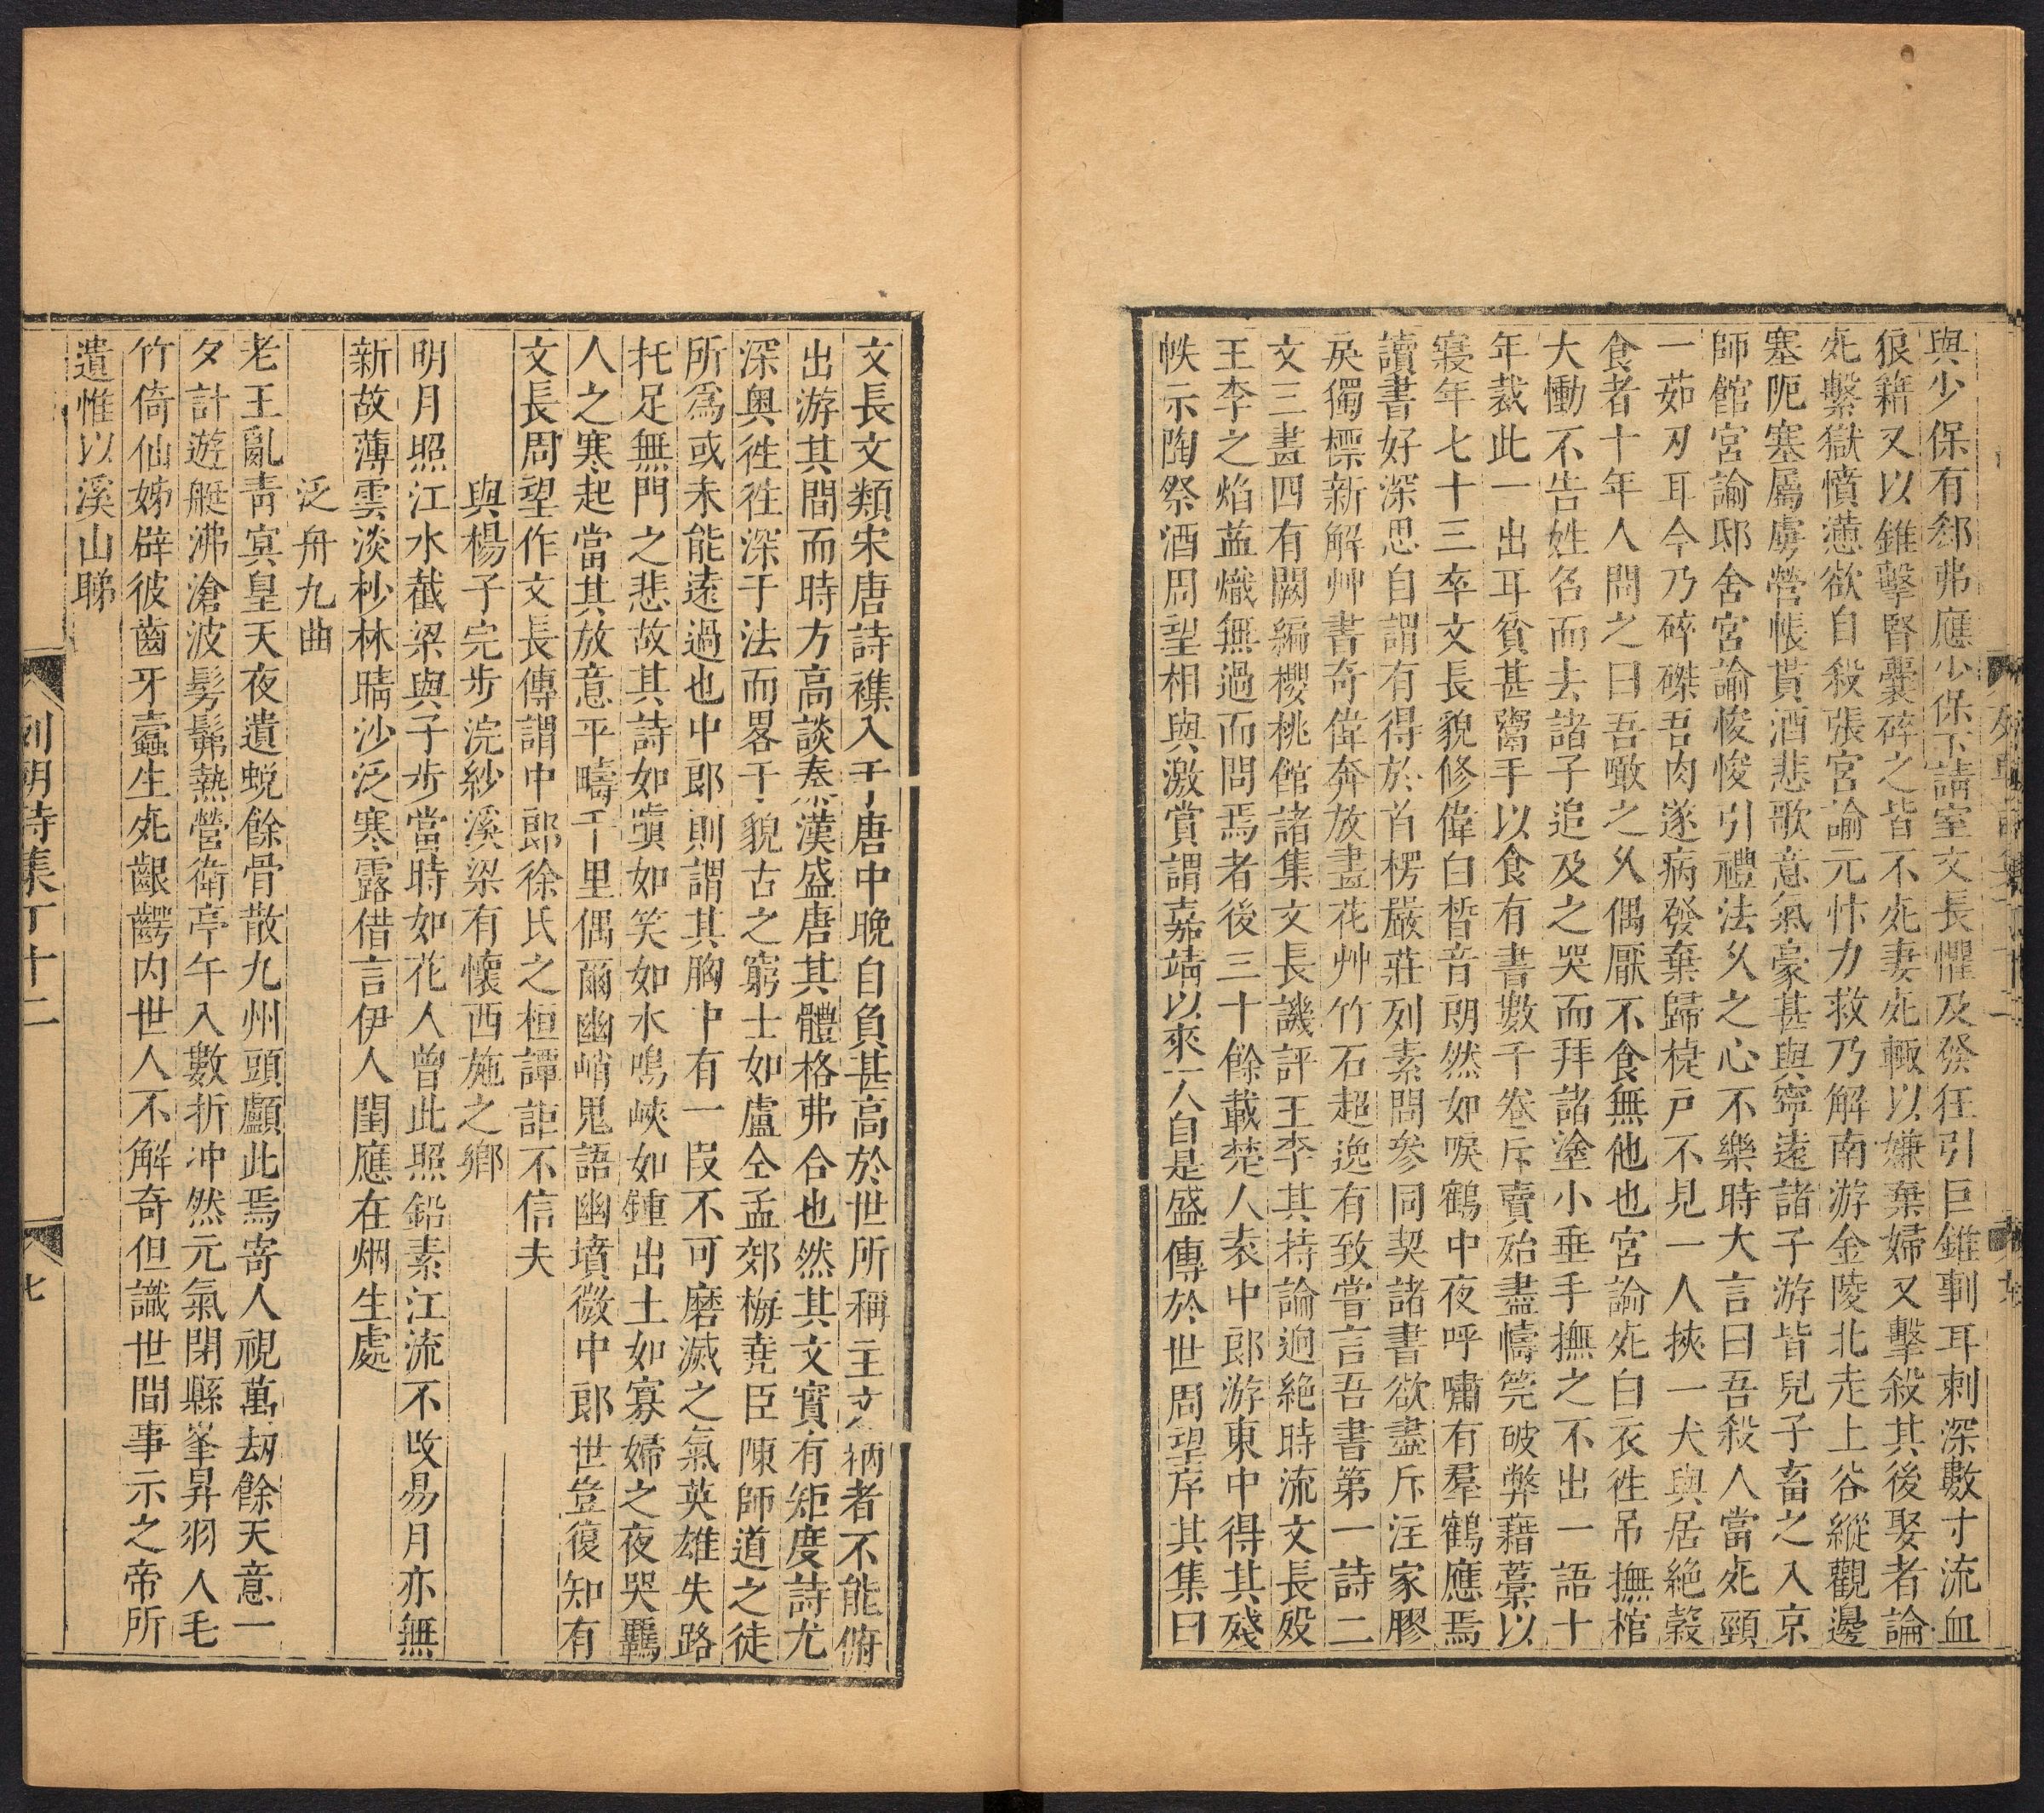 與少保有郄弗應少保下請室文長懼及發狂引巨錐剚耳刺深數寸流血
狼藉又以錐擊腎囊碎之皆不死妻死輒以嫌棄婦又擊殺其後娶者論
死繫獄憤懣欲自殺張宮諭元忭力救乃解南游金陵北走上谷縱觀邊
塞阨塞屬虜營帳貰酒悲歌意氣豪甚與寧遠諸子游皆兒子畜之入京
師館宮諭邸舍宮諭悛悛引禮法久之心不樂時大言曰吾殺人當死頸
一茹刃耳今乃碎磔吾肉遂病發棄歸楗戸不見一人挾一犬與居絶穀
食者十年人問之曰吾噉之久偶厭不食無他也宮諭死白衣徃吊撫棺
大慟不告姓名而去諸子追及之哭而拜諸塗小垂手撫之不出一語十
年裁此一出耳貧甚鬻手以食有書數千卷斥賣殆盡幬筦破弊藉藁以
寢年七十三卒文長貌修偉白皙音朗然如唳鶴中夜呼嘯有羣鶴應焉
讀書好深思自謂有得於首楞嚴莊列素問參同契諸書欲盡斥注家膠
戾獨標新解艸書奇偉奔放畫花艸竹石超逸有致嘗言吾書第一詩二
文三畫四有闕編櫻桃館諸集文長譏評王李其持論迥絶時流文長殁
王李之焰葢熾無過而問焉者後三十餘載楚人袁中郎游東中得其殘
帙示陶祭酒周望相與激賞謂嘉靖以來一人自是盛傳於世周望序其集曰
文長文類宋唐詩襍入于唐中晚自負甚高於世所稱主文柄者不能俯
出游其間而時方高談秦漢盛唐其體格弗合也然其文實有矩度詩尤
深奥徃徃深于法而畧于貌古之窮士如盧仝孟郊梅堯臣陳師道之徒
所爲或未能遠過也中郎則謂其胸中有一段不可磨滅之氣英雄失路
托足無門之悲故其詩如嗔如笑如水鳴峽如鍾出土如寡婦之夜哭羈
人之寒起當其放意平疇千里偶爾幽峭鬼語幽墳微中郎世豈復知有
文長周望作文長傳謂中郎徐氏之桓譚詎不信夫
與楊子完步浣紗溪梁有懷西施之鄉
明月照江水截梁與子步當時如花人曾此照鉛素江流不改易月亦無
新故薄雲淡杪林晴沙泛寒露借言伊人閨應在烟生處
泛舟九曲
老王亂靑寅皇天夜遺蛻餘骨散九州頭顱此焉寄人視萬刼餘天意一
夕計遊艇沸滄波髣髴熱營衛亭午入數折冲然元氣閉縣峯昇羽人毛
竹倚仙姊辟彼齒牙蠧生死齦齶内世人不解奇但識世間事示之帝所
遺惟以溪山睇
列朝詩集丁十二
七